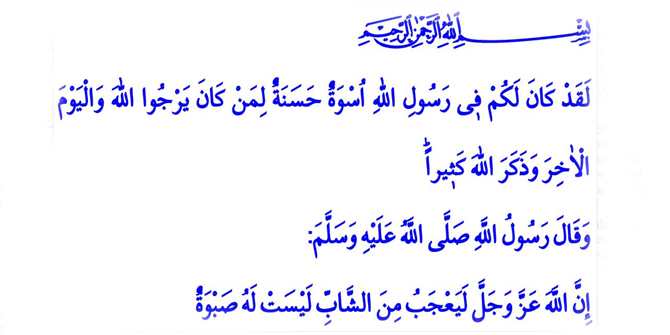 بِسْمِ اللهِ الرَّحْمٰنِ الرَّحِيمِ
لَقَدْ كَانَ لَكُمْ فِى رَسُولِ اللهِ اُسْوَةٌ حَسَنَةٌ لِمَنْ كَانَ يَرْجُوا اللهَ وَالْيَوْمَ
الْاٰخِرَ وَذَكَرَ اللهَ كَثِيراًۜ
وَقَالَ رَسُولُ اللَّهِ صَلَّى اللَّهُ عَلَيْهِ وَسَلَّمَ:
إِنَّ اللَّهَ عَزَّ وَجَلَّ لَيَعْجَبُ مِنَ الشَّابِّ لَيْسَتْ لَهُ صَبْوَةٌ